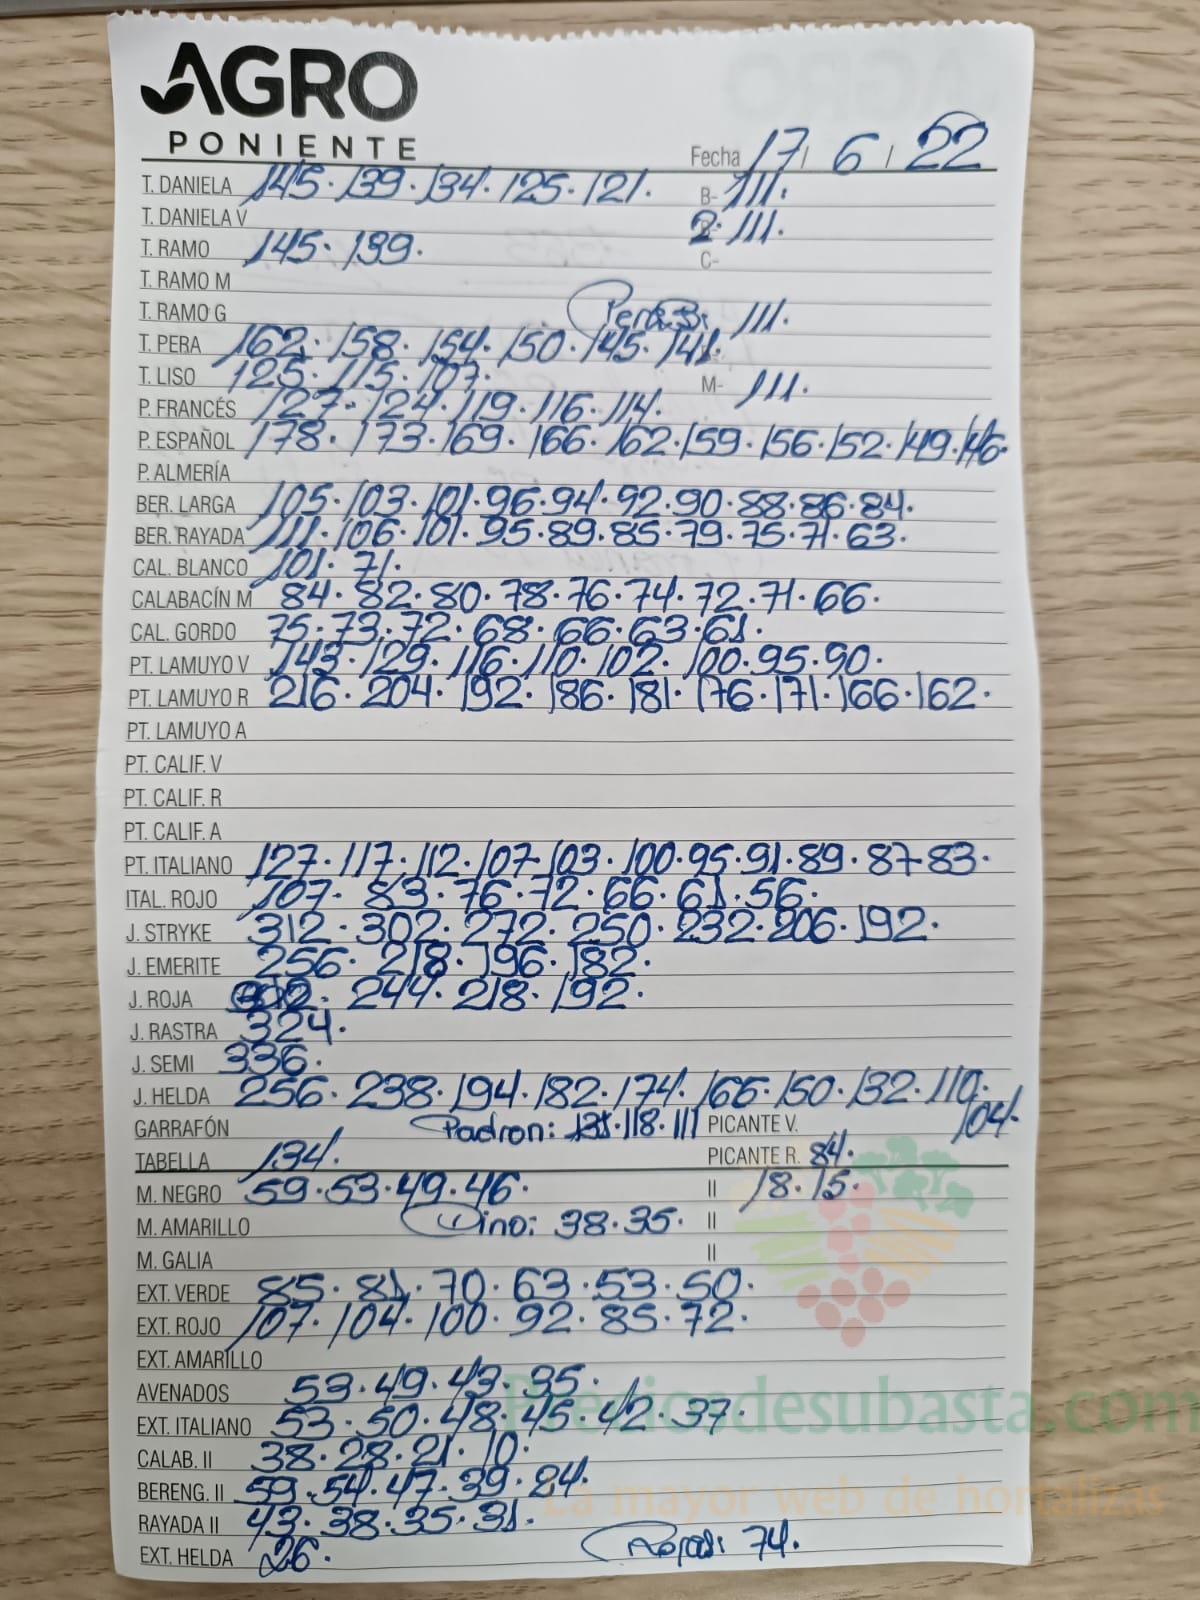 AGRO
PONIENTE
Fecha 17/ 6 / 22
T. DANIELA 145. 139. 134. 125. 121. B- 111.
T. DANIELA V 2. 111.
T. RAMO 145. 139. C-
T. RAMO M
T. RAMO G 111.
T. PERA 162. 158. 154. 150. 145. 141.
T. LISO 125. 115. 107. M- 111.
P. FRANCÉS 127. 124. 119. 116. 114.
P. ESPAÑOL 178. 173. 169. 166. 162. 159. 156. 152. 149. 146.
P. ALMERÍA
BER. LARGA 105. 103. 101. 96. 94. 92. 90. 88. 86. 84.
BER. RAYADA 111. 106. 101. 95. 89. 85. 79. 75. 71. 63.
CAL. BLANCO 101. 71.
CALABACÍN M 84. 82. 80. 78. 76. 74. 72. 71. 66.
CAL. GORDO 75. 73. 72. 68. 66. 63. 61.
PT. LAMUYO V 143. 129. 116. 110. 102. 100. 95. 90.
PT. LAMUYO R 216. 204. 192. 186. 181. 176. 171. 166. 162.
PT. LAMUYO A
PT. CALIF. V
PT. CALIF. R
PT. CALIF. A
PT. ITALIANO 127. 117. 112. 107. 103. 100. 95. 91. 89. 87. 83.
ITAL. ROJO 107. 83. 76. 72. 66. 61. 56.
J. STRYKE 312. 302. 272. 250. 232. 206. 192.
J. EMERITE 256. 218. 196. 182.
J. ROJA 244. 218. 192.
J. RASTRA 324.
J. SEMI 336.
J. HELDA 256. 238. 194. 182. 174. 166. 150. 132. 110. 104.
GARRAFÓN Padron: 131. 118. 111 PICANTE V.
TABELLA 134. PICANTE R. 84.
M. NEGRO 59. 53. 49. 46. II 18. 15.
M. AMARILLO Dino: 38. 35. II
M. GALIA II
EXT. VERDE 85. 81. 70. 63. 53. 50.
EXT. ROJO 107. 104. 100. 92. 85. 72.
EXT. AMARILLO
AVENADOS 53. 49. 43. 35.
Preciosdesubasta.com
EXT. ITALIANO 53. 50. 48. 45. 42. 37.
CALAB. II 38. 28. 21. 10.
BERENG. II 59. 54. 47. 39. 24.
La mayor web de hortalizas
RAYADA II 43. 38. 35. 31.
EXT. HELDA 26. 74.